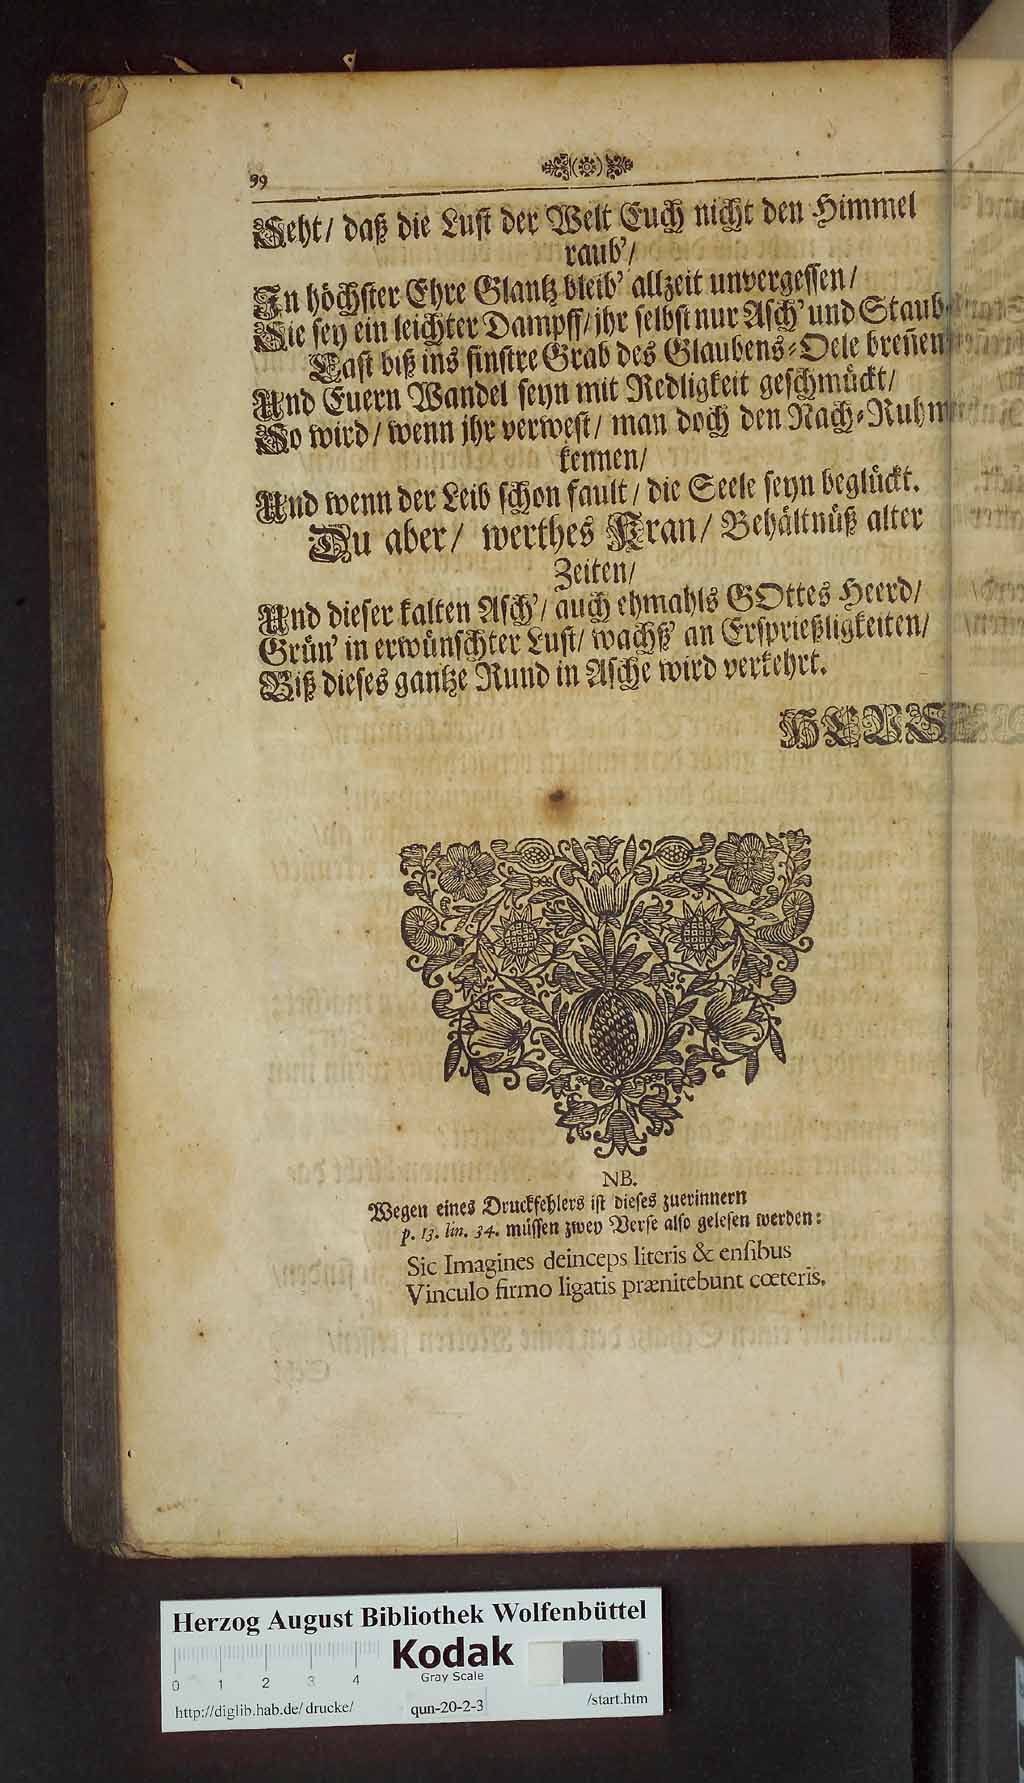 99
Seht/ daß die Lust der Welt Euch nicht den Himmel
raub'/
In höchster Ehre Glantz bleib' allzeit unvergessen/
Sie sey ein leichter Dampff/ ihr selbst nur Asch' und Staub
Last biß ins finstre Grab des Glaubens-Oele breñen
Und Euern Wandel seyn mit Redligkeit geschmückt/
So wird/ wenn ihr verwest/ man doch den Nach-Ruhm
kennen/
Und wenn der Leib schon fault/ die Seele seyn beglückt.
Du aber/ werthes Kran/ Behältnüß alter
Zeiten/
Und dieser kalten Asch'/ auch ehmahls GOttes Heerd/
Grün' in erwünschter Lust/ wachß' an Ersprießligkeiten/
Biß dieses gantze Rund in Asche wird verkehrt.
NB.
Wegen eines Druckfehlers ist dieses zuerinnern
p. 13. lin. 34. müssen zwey Verse also gelesen werden:
Sic Imagines deinceps literis & ensibus
Vinculo firmo ligatis prænitebunt cœteris.
Herzog August Bibliothek Wolfenbüttel
Kodak
Gray Scale
0 1 2 3 4
http://diglib.hab.de/drucke/ qun-20-2-3 /start.htm